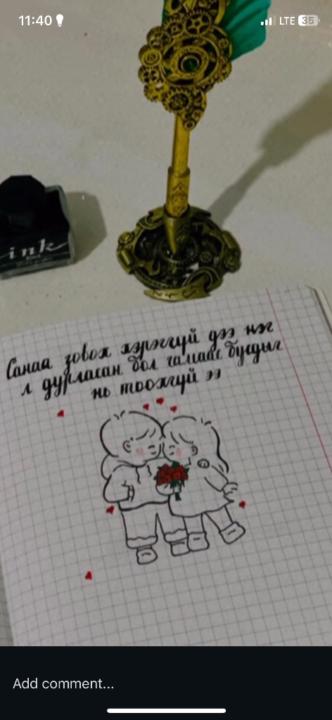 11:40
LTE 35
ink
Санаа зовох хэрэггүй дээ нэг
л дурласан бол чамаас бусдыг
нь тоохгүй ээ
Add comment...